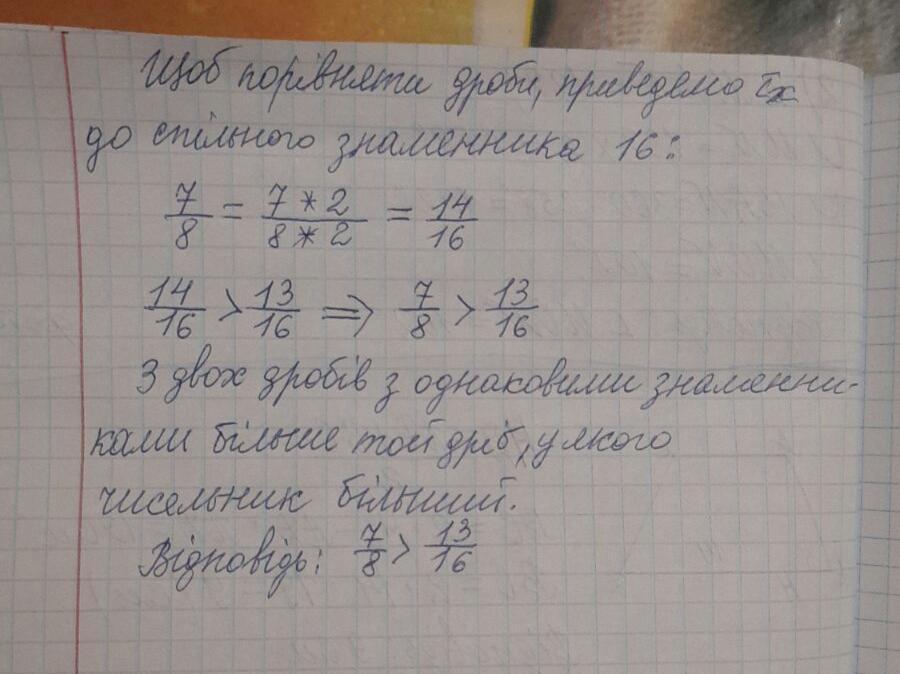 Щоб порівняти дроби, приведемо їх
до спільного знаменника 16:
7/8 = 7 * 2 / 8 * 2 = 14/16
14/16 > 13/16 ⇒ 7/8 > 13/16
З двох дробів з однаковими знаменни-
ками більше той дріб, у якого
чисельник більший.
Відповідь: 7/8 > 13/16